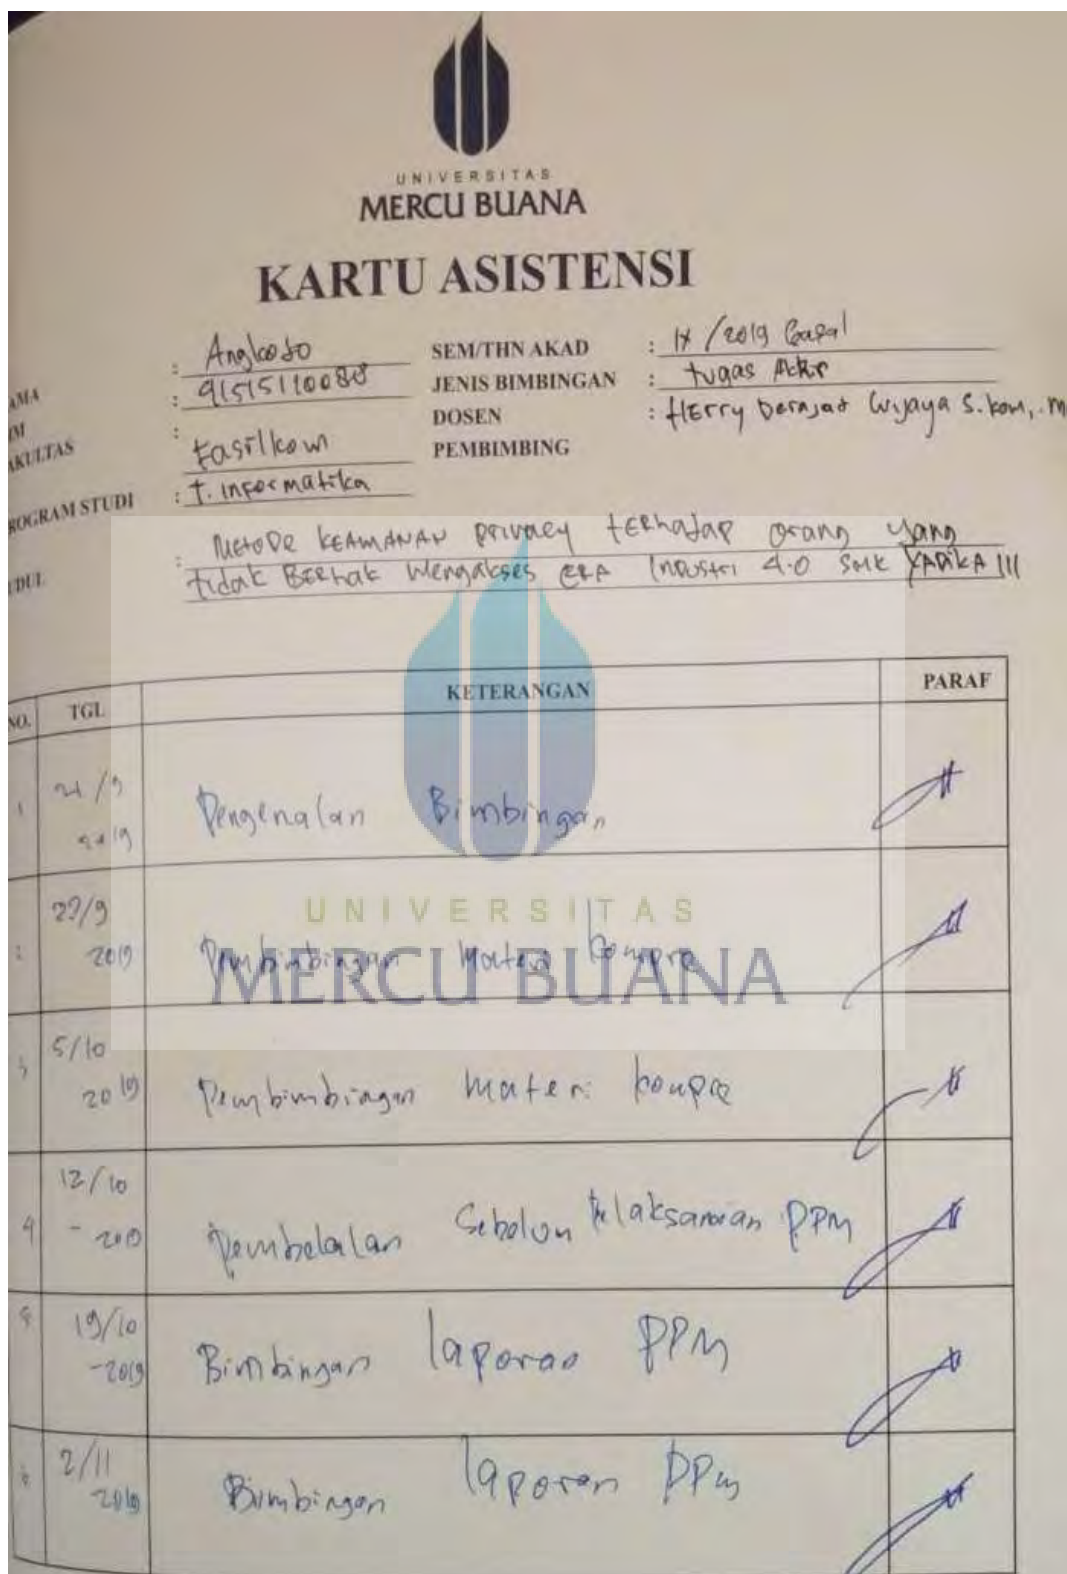 UNIVERSITAS
MERCU BUANA
KARTU ASISTENSI
AMA : Angkoso
IM : 41515110088
AKULTAS : Fasilkom
ROGRAM STUDI : T. informatika
SEM/THN AKAD : IX / 2019 Gasal
JENIS BIMBINGAN : tugas Akhir
DOSEN : HErry Derajad Wijaya S.kom,. M
PEMBIMBING
UDUL : METODE KEAMANAN privacy tERhadap orang yang
tidak BERhak Mengakses ERA Industri 4.0 SMK YADIKA III
NO. TGL KETERANGAN PARAF
1 21/9 2019 Pengenalan Bimbingan
2 2019 Pembimbingan Materi kompre
UNIVERSITAS
MERCU BUANA
3 5/10 2019 Pembimbingan Materi kompre
4 12/10 - 2019 Pembekalan Sebelum Pelaksanaan PPM
5 19/10 - 2019 Bimbingan laporan PPM
6 2/11 2019 Bimbingan laporan PPM